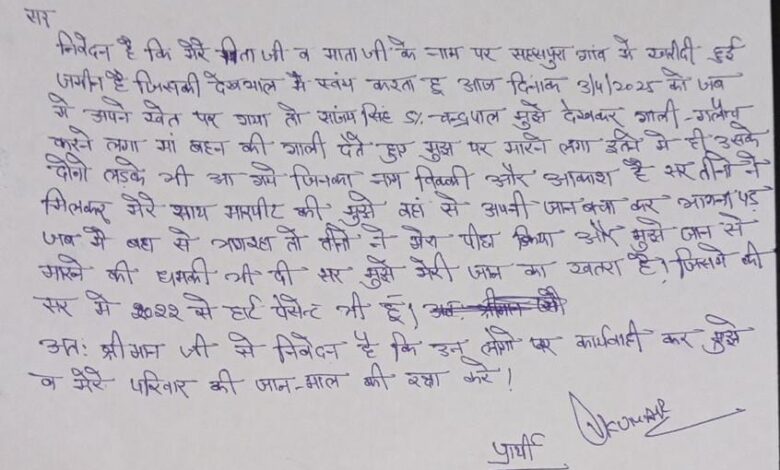 सर
निवेदन है कि मेरे पिता जी व माता जी के नाम पर सहसपुरा गांव मे खरीदी हुई
जमीन है जिसकी देखभाल मै स्वंय करता हू आज दिनांक 3/4/2025 को जब
मे अपने खेत पर गया तो संजय सिंह S/- चन्द्रपाल मुझे देखकर गाली-गलौच
करने लगा मां बहन की गाली देते हुए मुझ पर मारने लगा इतने मे ही उसके
दोनो लड़के भी आ गये जिनका नाम विक्की और आकाश है सर तीनो ने
मिलकर मेरे साथ मारपीट की मुझे वहां से अपनी जान बचा कर भागना पड़
जब मै वहा से भागरहा तो तीनो ने मेरा पीछा किया और मुझे जान से
मारने की धमकी भी दी सर मुझे मेरी जान का खतरा है। जिसमे की
सर मे 2022 से हार्ट पेसेन्ट भी हूँ।
अतः श्रीमान जी से निवेदन है कि उन लोगो पर कार्यवाही कर मुझे
व मेरे परिवार की जान-माल की रक्षा करे।
KUMAR
प्रार्थी